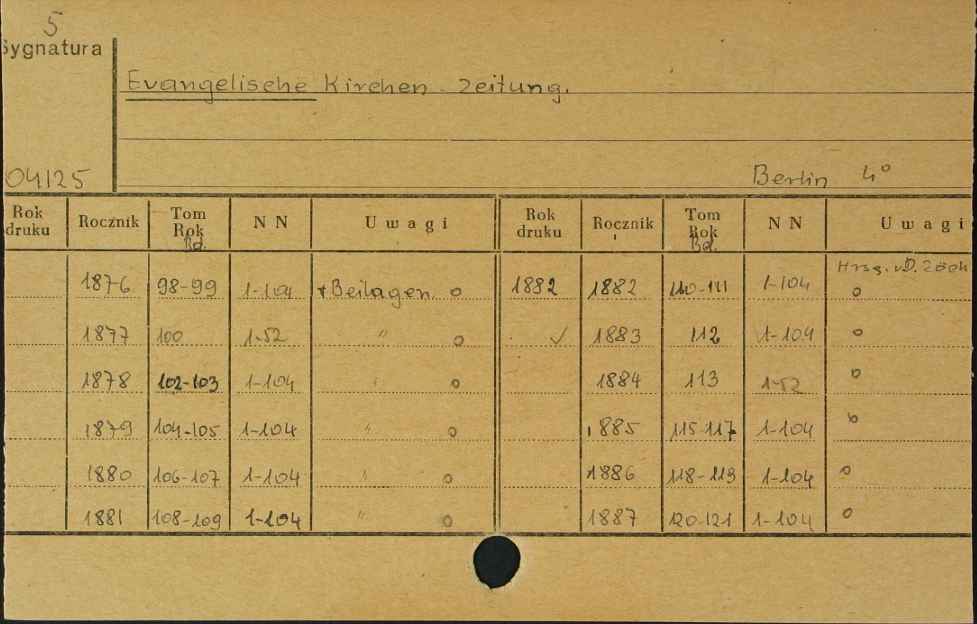 5
Sygnatura
Evangelische Kirchen-Zeitung.
04125
Berlin 4°
Rok druku Rocznik Tom Rok Bd. NN Uwagi Rok druku Rocznik Tom Rok Bd. NN Uwagi
Hrsg. v. D. Zöck
1876 98-99 1-104 + Beilagen o 1882 1882 110-111 1-104 o
1877 100 1-52 " o ✓ 1883 112 1-104 o
1878 102-103 1-104 " o 1884 113 1-52 o
1879 104-105 1-104 " o 1885 115-117 1-104 o
1880 106-107 1-104 " o 1886 118-119 1-104 o
1881 108-109 1-104 " o 1887 120-121 1-104 o